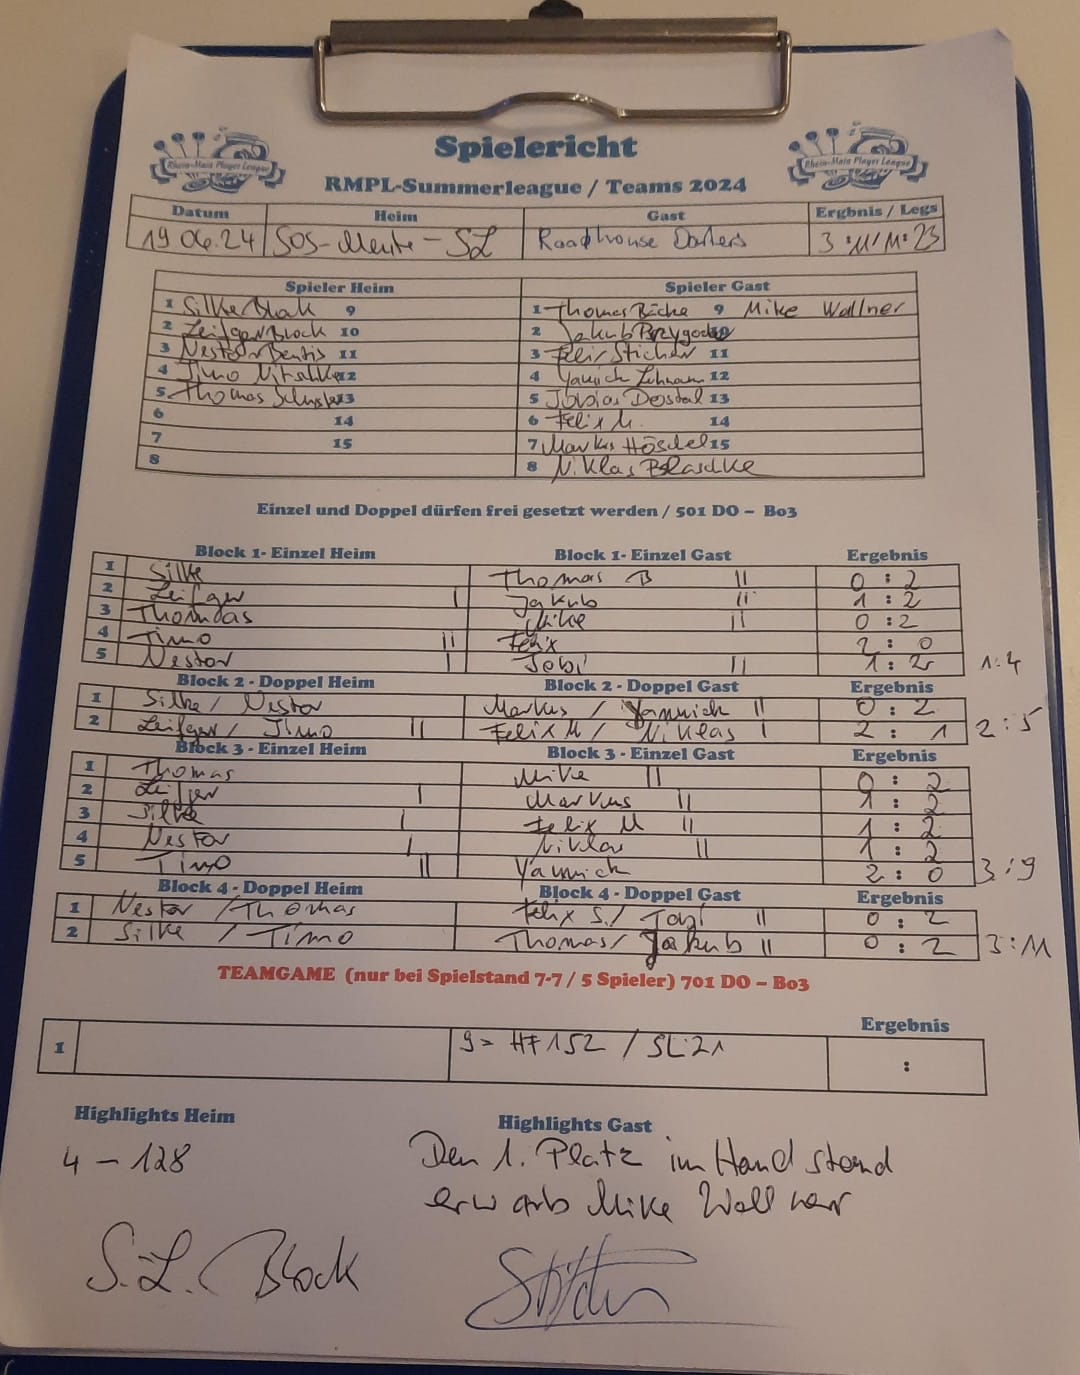 Spielericht
Rhein-Main Player League
Rhein-Main Player League
RMPL-Summerleague / Teams 2024
Datum Heim Gast Ergbnis / Legs
19.06.24 SOS-Meute-SL Roadhouse Darters 3:11/11:23
Spieler Heim Spieler Gast
1 Silke Block 9 1 Thomas Bäcke 9 Mike Wallner
2 Leifger Block 10 2 Jakub Przygoda
3 Nestor 11 3 Felix Sticher 11
4 Timo Nitschke 12 4 Yannick Lehmann 12
5 Thomas Schuster 13 5 Tobias Dostal 13
6 14 6 Felix M. 14
7 15 7 Markus Höschel 15
8 8 Niklas Blaschke
Einzel und Doppel dürfen frei gesetzt werden / 501 DO - Bo3
Block 1- Einzel Heim Block 1- Einzel Gast Ergebnis
1 Silke Thomas B II 0 : 2
2 Leifger I Jakub II 1 : 2
3 Thomas Mike II 0 : 2
4 Timo II Felix 2 : 0
5 Nestor I Tobi II 1 : 2 1:4
Block 2 - Doppel Heim Block 2 - Doppel Gast Ergebnis
1 Silke / Nestor Markus / Yannick II 0 : 2
2 Leifger / Timo II Felix M / Niklas I 2 : 1 2:5
Block 3 - Einzel Heim Block 3 - Einzel Gast Ergebnis
1 Thomas Mike II 0 : 2
2 Leifger I Markus II 1 : 2
3 Silke I Felix M II 1 : 2
4 Nestor I Niklas II 1 : 2
5 Timo II Yannick 2 : 0 3:9
Block 4 - Doppel Heim Block 4 - Doppel Gast Ergebnis
1 Nestor / Thomas Felix S. / Tobi II 0 : 2
2 Silke / Timo Thomas / Jakub II 0 : 2 3:11
TEAMGAME (nur bei Spielstand 7-7 / 5 Spieler) 701 DO - Bo3
Ergebnis
1 G = HF 152 / SL:21 :
Highlights Heim Highlights Gast
4 - 128 Den 1. Platz im Handstand
erwarb Mike Wallner
S.L. Block